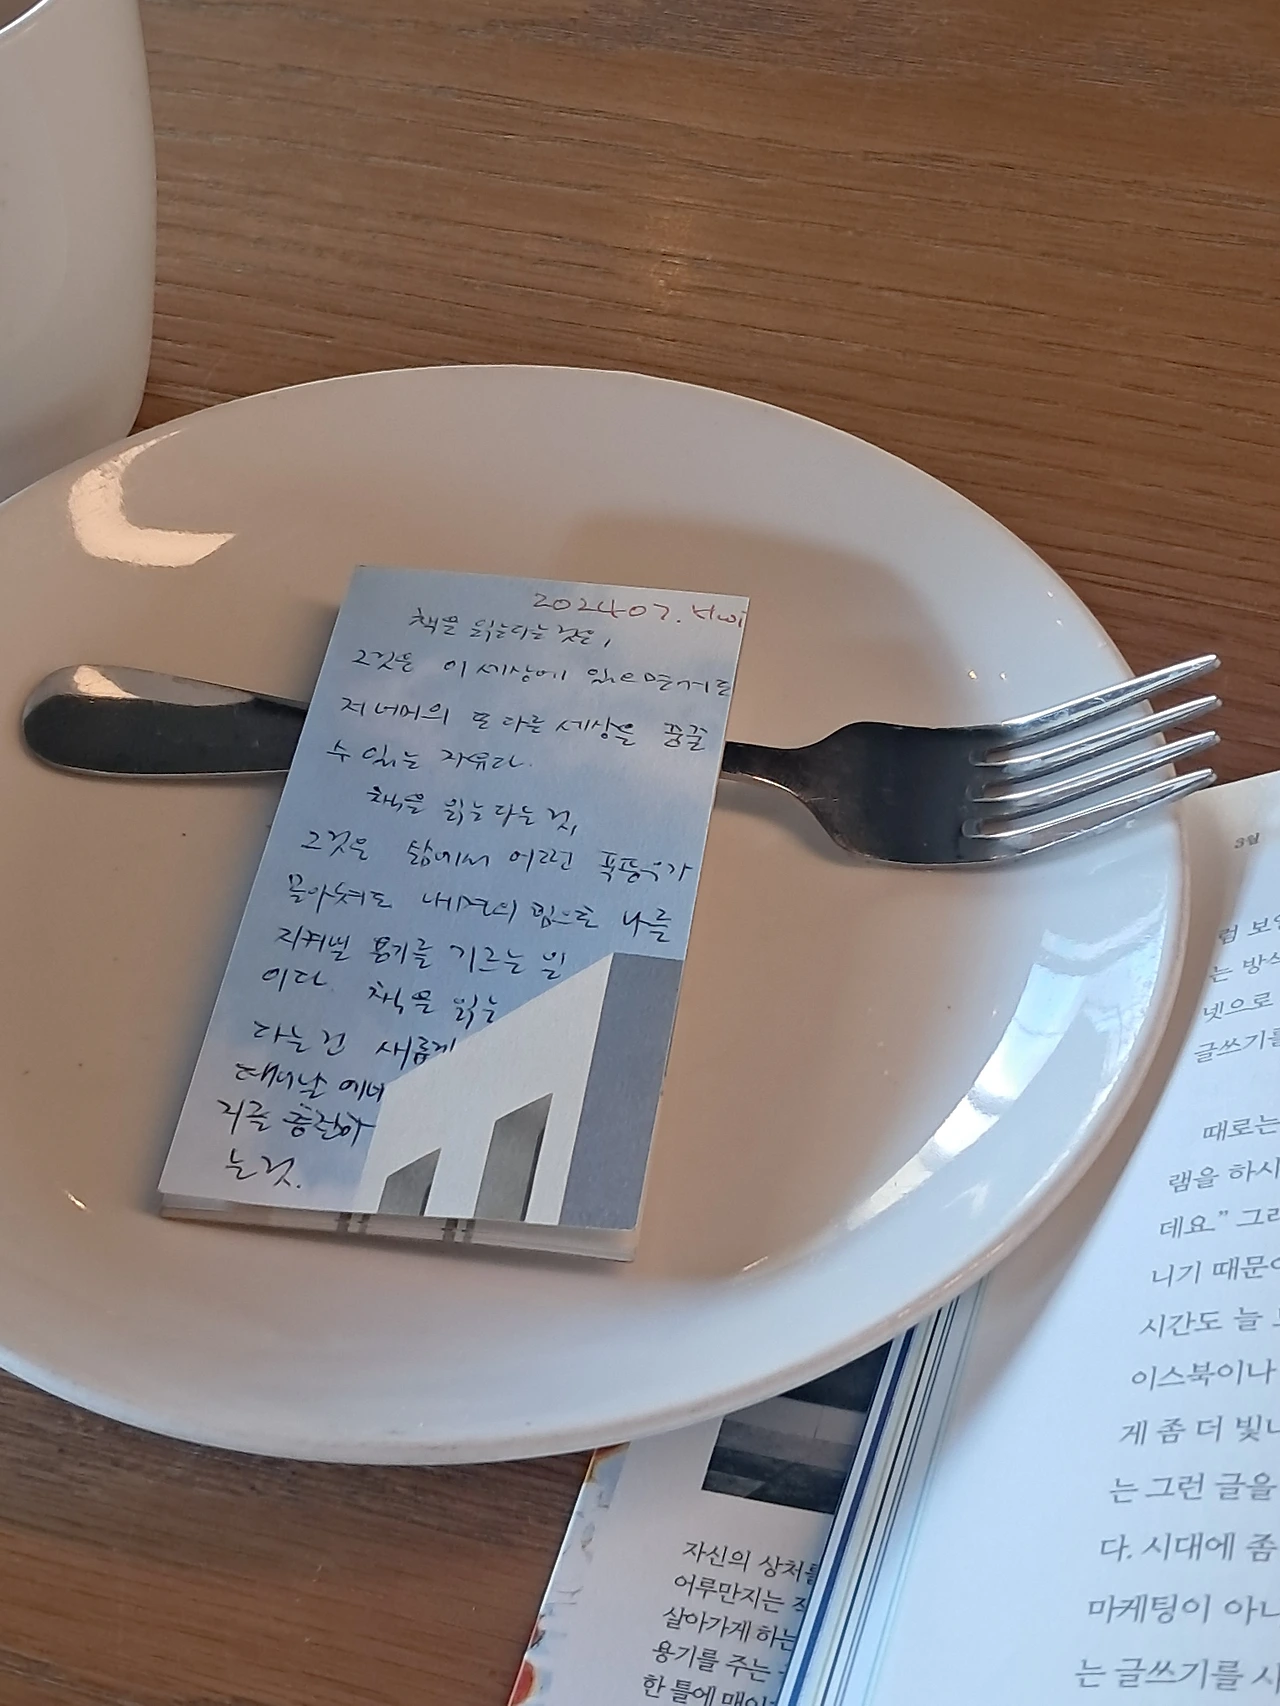 202407. Hwi
책을 읽는다는 것은,
그것은 이 세상에 있으면서도
저 너머의 또 다른 세상을 꿈꿀
수 있는 자유다.
책을 읽는다는 것,
그것은 삶에서 어떤 폭풍우가
몰아쳐도 내면의 힘으로 나를
지켜낼 용기를 기르는 일
이다. 책을 읽는
다는 건 새롭게
태어날 에너
지를 충전하
는 것.
3월
럼 보
는 방식
넷으로
글쓰기를
때로는
램을 하시
데요.” 그
니기 때문
시간도 늘
이스북이나
게 좀 더 빛나
는 그런 글을
다. 시대에 좀
마케팅이 아니
는 글쓰기를 시
자신의 상처를
어루만지는
살아가게 하는
용기를 주는
한 틀에 매이